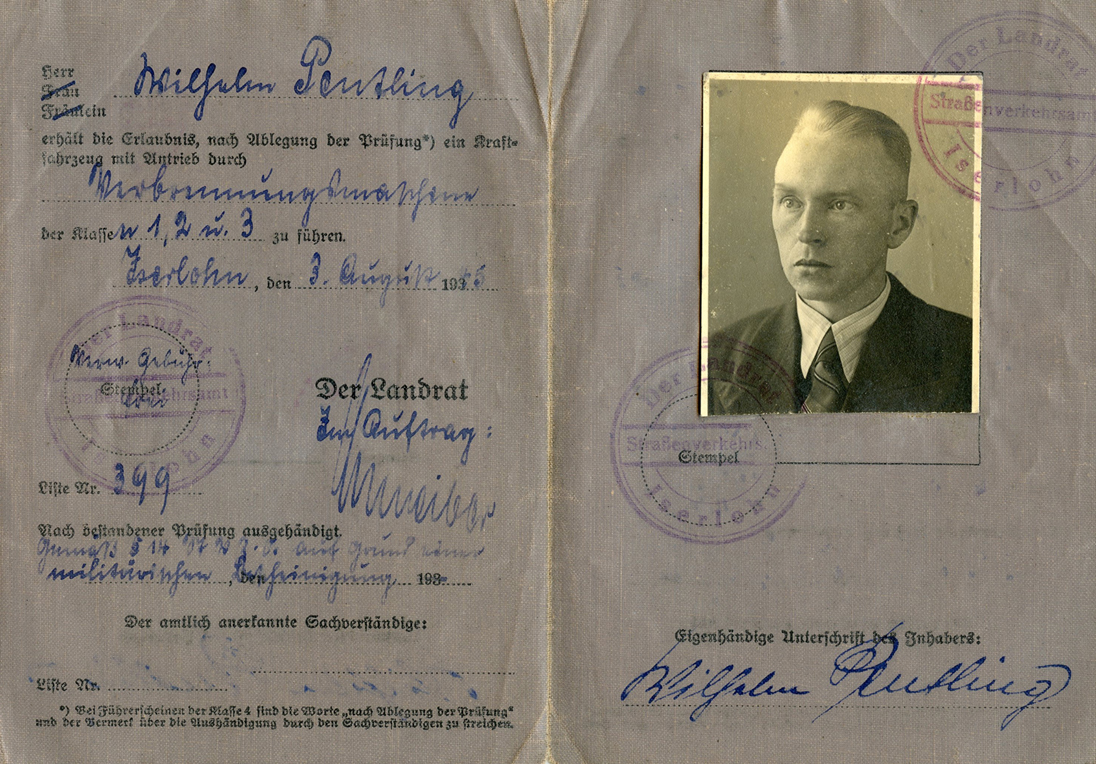 Herr
Frau
Fräulein
Wilhelm Pentling
erhält die Erlaubnis, nach Ablegung der Prüfung*) ein Kraft-
fahrzeug mit Antrieb durch
Verbrennungsmaschine
der Klassen 1, 2 u. 3 zu führen.
Iserlohn, den 3. August 19
Der Landrat
Straßenverkehrsamt
Iserlohn
Verw. Gebühr.
Stempel
frei
Der Landrat
Im Auftrag:
Liste Nr. 399
Nach bestandener Prüfung ausgehändigt.
Gemäß § 14 auf Grund einer
militärischen Bescheinigung, den 193
Der amtlich anerkannte Sachverständige:
Liste Nr.
*) Bei Führerscheinen der Klasse 4 sind die Worte „nach Ablegung der Prüfung"
und der Vermerk über die Aushändigung durch den Sachverständigen zu streichen.
Der Landrat
Straßenverkehrsamt
Iserlohn
Der Landrat
Straßenverkehrs.
Stempel
Iserlohn
Eigenhändige Unterschrift des Inhabers:
Wilhelm Pentling